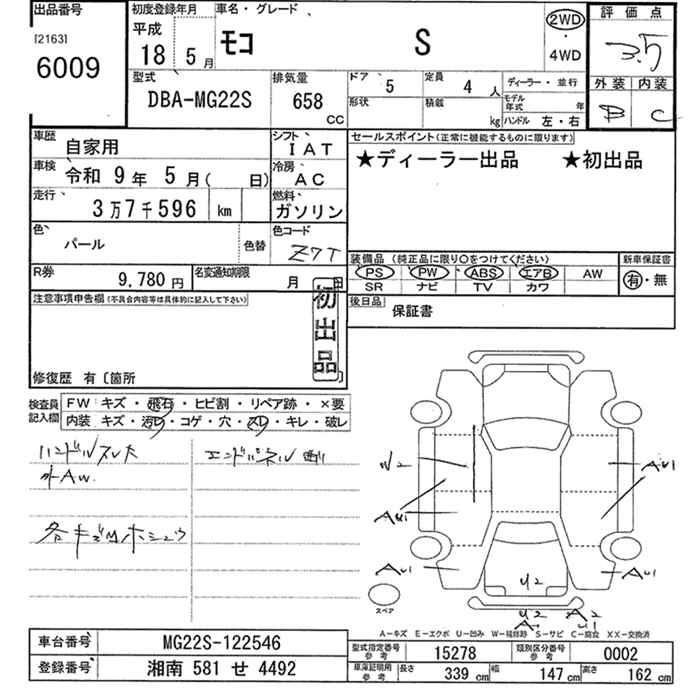 出品番号
[2163]
6009
初度登録年月
平成
18 5月
車名・グレード
モコ S
2WD
・
4WD
評価点
3.5
外装 内装
B C
型式
DBA-MG22S
排気量
658
CC
ドア 5
定員 4人
ディーラー・並行
形状
積載 kg
モデル年式 年
ハンドル 左・右
車歴 自家用
シフト IAT
車検 令和 9年 5月( 日)
冷房 AC
走行 3万7千596 km
燃料 ガソリン
色 パール
色替
色コード Z7T
R券 9,780円
名変通知期限 月 日
セールスポイント(正常に機能するものに限ります)
★ディーラー出品 ★初出品
装備品(純正品に限り○をつけてください)
新車保証書
PS PW ABS エアB AW
SR ナビ TV カワ
有・無
後日品
保証書
注意事項申告欄(不具合内容等は具体的に記入して下さい)
初出品
修復歴 有〔箇所 〕
検査員記入欄
FW キズ・飛石・ヒビ割・リペア跡・×要
内装 キズ・汚レ・コゲ・穴・スレ・キレ・破レ
ハンドルスレ大
外AW.
エンドパネル
W2
AU1
AU1
AU1
AU1
AU1
U2
U2
A2
U1
スペア
A-キズ E-エクボ U-凹み W-補修跡 S-サビ C-腐食 XX-交換済
車台番号 MG22S-122546
登録番号 湘南 581 せ 4492
型式指定番号 参考 15278
類別区分番号 参考 0002
車庫証明用 参考 長さ 339cm 幅 147cm 高さ 162cm